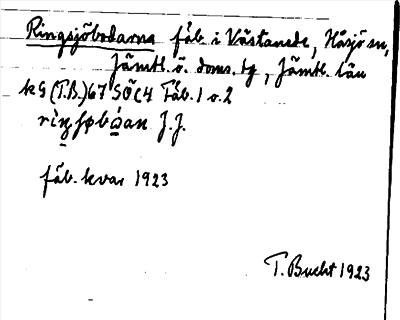 Ringsjöbodarna fäb. i Västanede, Håsjö sn,
Jämtl. ö. doms. tg, Jämtl. län
kG (T.B.) 67 SÖC4 Fäb. 1 o. 2
J.J.
fäb. kvar 1923
T. Bucht 1923